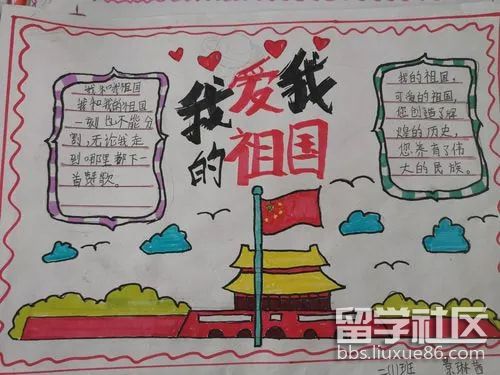 我爱我
的祖国
我和我祖国
我和我的祖国
一刻也不能分
割,无论我走
到哪里都下一
首赞歌。
我的祖国,
可爱的祖国,
您创造了辉
煌的历史,
您养育了伟
大的民族。
留学社区
bbs.liuxue86.com
班